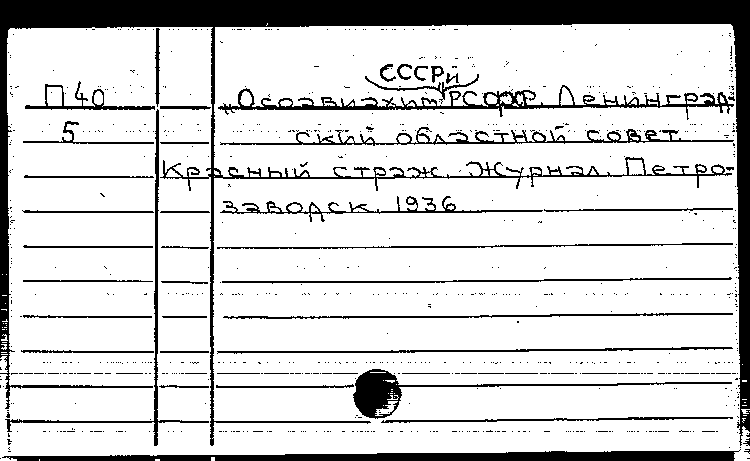 СССР и
П 40 „Осоавиахим РСФСР. Ленинград-
5 ский областной совет.
Красный страж. Журнал. Петро-
заводск. 1936